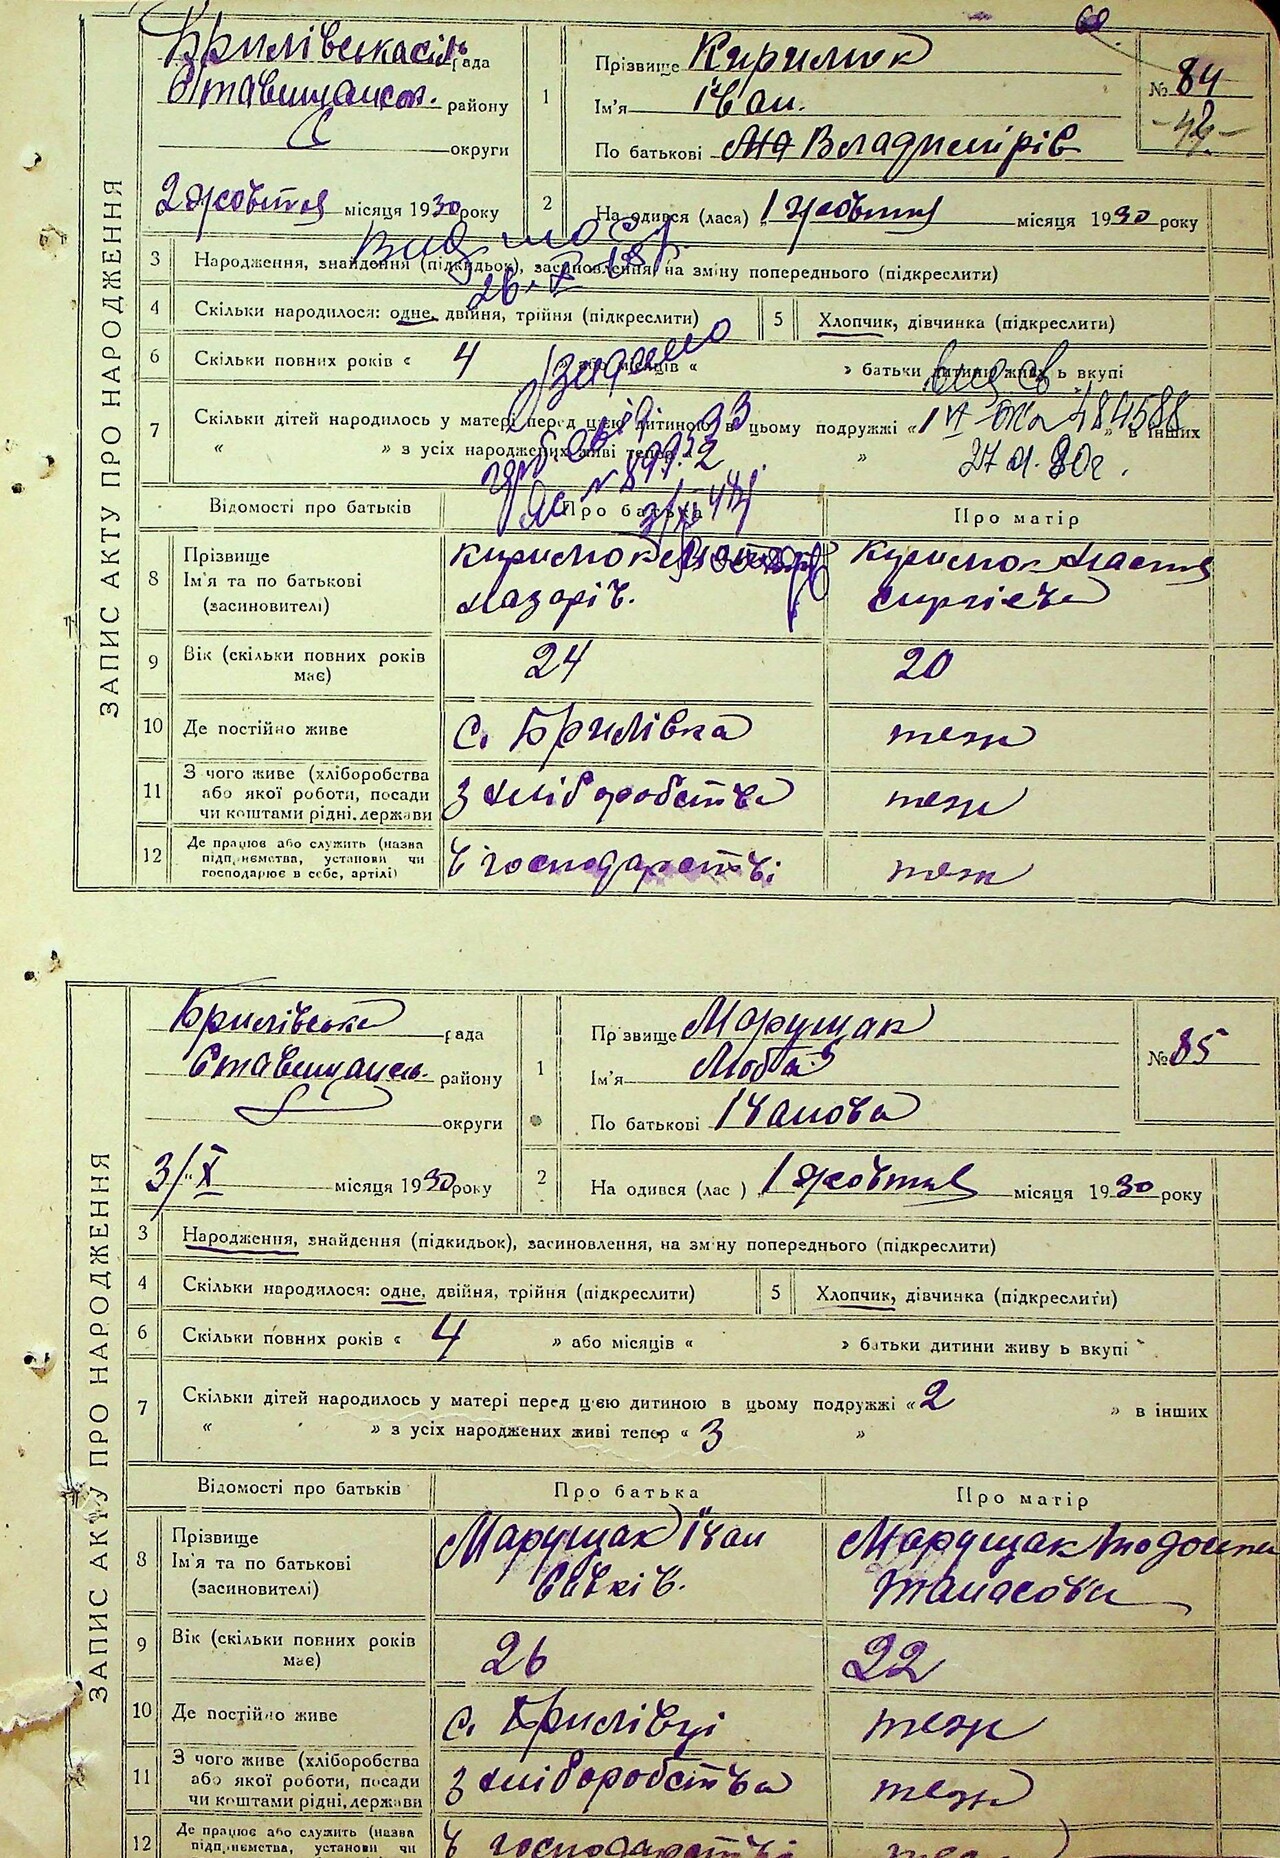 60.
ЗАПИС АКТУ ПРО НАРОДЖЕННЯ
Брилівська сіль рада
Ставищанськ. району
округи
2 жовтня місяця 1930 року
1 Прізвище Кирилюк
Ім'я Іван.
По батькові Владимірів
№ 84
2 На одився (лася) „1 жовтня місяця 1930 року
3 Народження, знайдення (підкидьок), засиновлення, на зміну попереднього (підкреслити)
4 Скільки народилося: одне, двійня, трійня (підкреслити)
5 Хлопчик, дівчинка (підкреслити)
6 Скільки повних років « 4 » або місяців « » батьки дитини живуть вкупі
7 Скільки дітей народилось у матері перед цією дитиною в цьому подружжі « » в інших
« » з усіх народжених живі тепер « »
484588
Відомості про батьків
Про батька
Про матір
8 Прізвище
Ім'я та по батькові
(засиновителі)
Кирилюк
Назарів.
Кирилюк Настя
Сиргієва
9 Вік (скільки повних років має) 24 20
10 Де постійно живе с. Брилівка теж
11 З чого живе (хліборобства
або якої роботи, посади
чи коштами рідні, держави
з хліборобства теж
12 Де працює або служить (назва
підприємства, установи чи
господарює в себе, артілі)
в господарстві теж
ЗАПИС АКТУ ПРО НАРОДЖЕННЯ
Брилівська рада
Ставищансь. району
округи
3/X місяця 1930 року
1 Прізвище Марущак
Ім'я Люба
По батькові Іванова
№ 85
2 На одився (лас ) „1 жовтня місяця 1930 року
3 Народження, знайдення (підкидьок), засиновлення, на зміну попереднього (підкреслити)
4 Скільки народилося: одне, двійня, трійня (підкреслити)
5 Хлопчик, дівчинка (підкреслити)
6 Скільки повних років « 4 » або місяців « » батьки дитини живуть вкупі
7 Скільки дітей народилось у матері перед цією дитиною в цьому подружжі « 2 » в інших
« » з усіх народжених живі тепер « 3 »
Відомості про батьків
Про батька
Про матір
8 Прізвище
Ім'я та по батькові
(засиновителі)
Марущак Іван
Савків.
Марущак Тодоська
Танасова
9 Вік (скільки повних років має) 26 22
10 Де постійно живе с. Брилівці теж
11 З чого живе (хліборобства
або якої роботи, посади
чи коштами рідні, держави
з хліборобства теж
12 Де працює або служить (назва
підприємства, установи чи
в господарстві теж